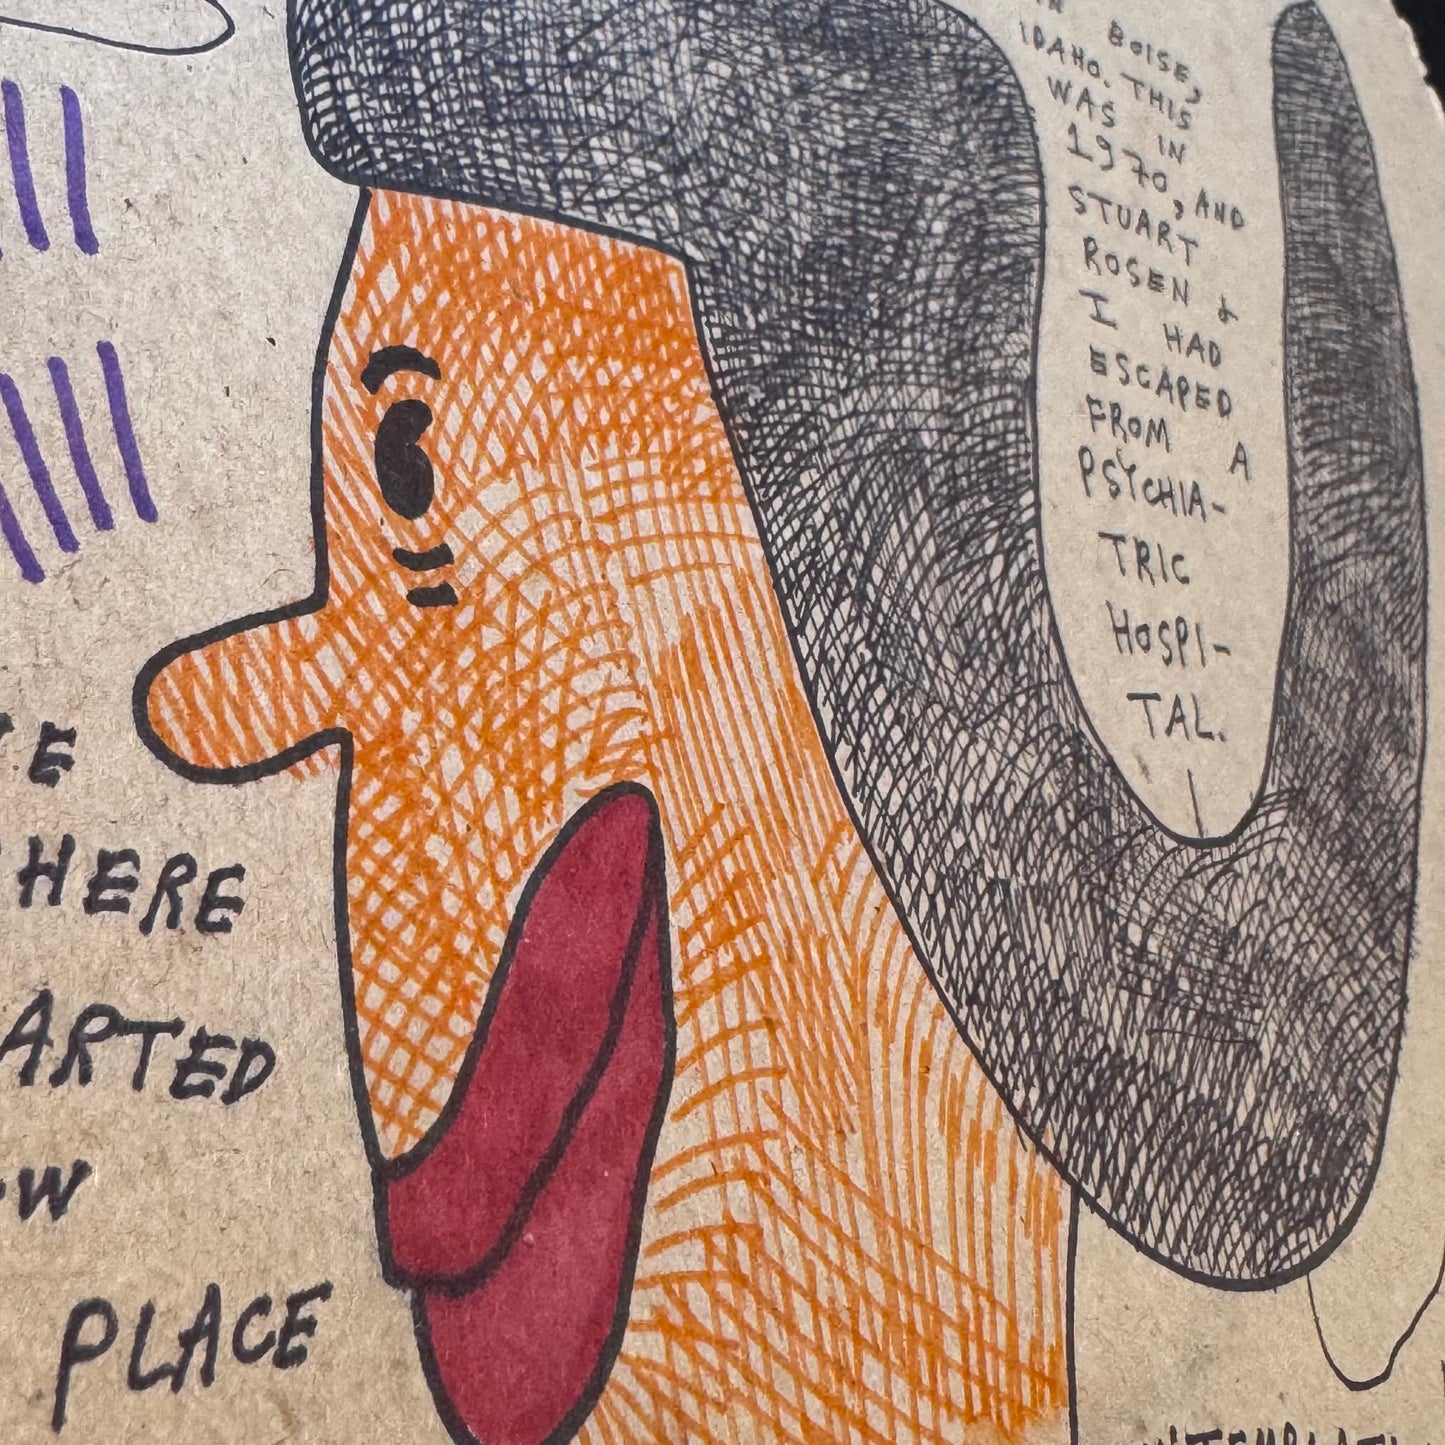 BOISE,
IDAHO. THIS
WAS IN
1970, AND
STUART
ROSEN &
I HAD
ESCAPED
FROM A
PSYCHIA-
TRIC
HOSPI-
TAL.
HERE
ARTED
PLACE